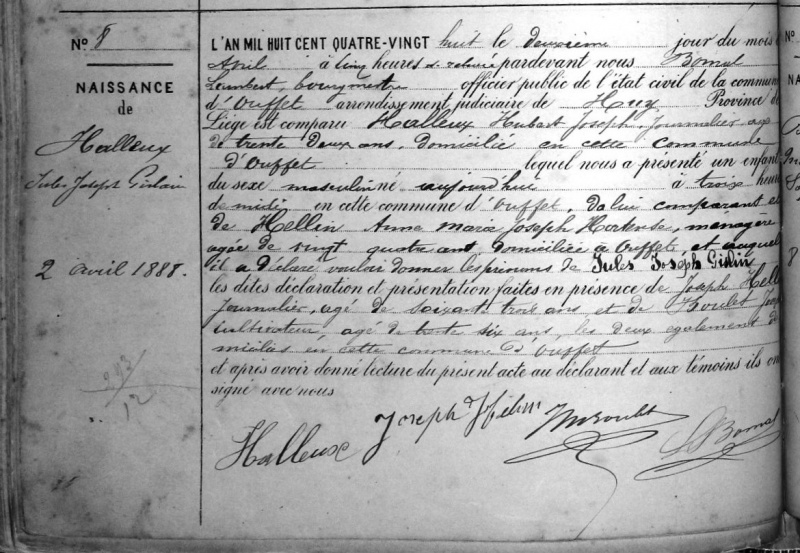 N° 8
NAISSANCE
de
Halleux
Jules Joseph Gislain
2 avril 1888.
293
12
L'AN MIL HUIT CENT QUATRE-VINGT huit le deuxième jour du mois d
Avril à cinq heures de relevée pardevant nous Bomal
Lambert, bourgmestre officier public de l'état civil de la commun
d'Ouffet arrondissement judiciaire de Huy Province de
Liége est comparu Halleux Hubert Joseph, Journalier, agé
de trente deux ans, domicilié en cette commune
d'Ouffet lequel nous a présenté un enfant
du sexe masculin né aujourd'hui à trois heur
de midi en cette commune d'Ouffet, de lui comparant et
de Hellin Anne Marie Joseph Hortense, ménagère
agée de vingt quatre ans domiciliée à Ouffet, et auquel
il a déclaré vouloir donner les prénoms de Jules Joseph Gislin
les dites déclaration et présentation faites en présence de Joseph Hell
Journalier, agé de soixante trois ans et de Boulet
cultivateur, agé de trente six ans, les deux également do
miciliés en cette commune d'Ouffet
et après avoir donné lecture du présent acte au déclarant et aux témoins ils on
signé avec nous
Halleux Joseph Hélin Boulet Bomal
N°
8